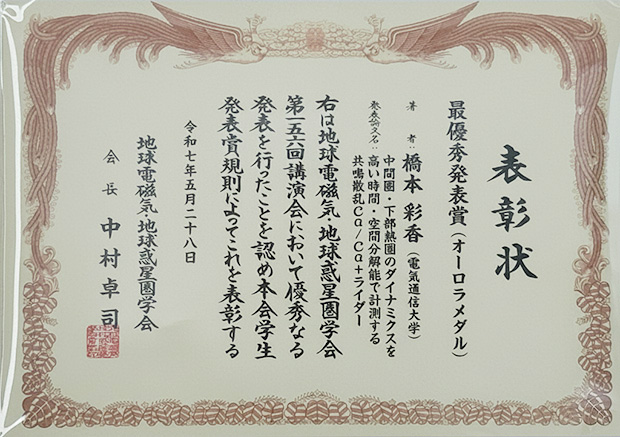 表彰状
最優秀発表賞(オーロラメダル)
著者:橋本 彩香(電気通信大学)
発表論文名:中間圏・下部熱圏のダイナミクスを
高い時間・空間分解能で計測する
共鳴散乱Ca/Ca+ライダー
右は地球電磁気・地球惑星圏学会
第一五六回講演会において優秀なる
発表を行ったことを認め本会学生
発表賞規則によってこれを表彰する
令和七年五月二十八日
地球電磁気・地球惑星圏学会
会長 中村卓司